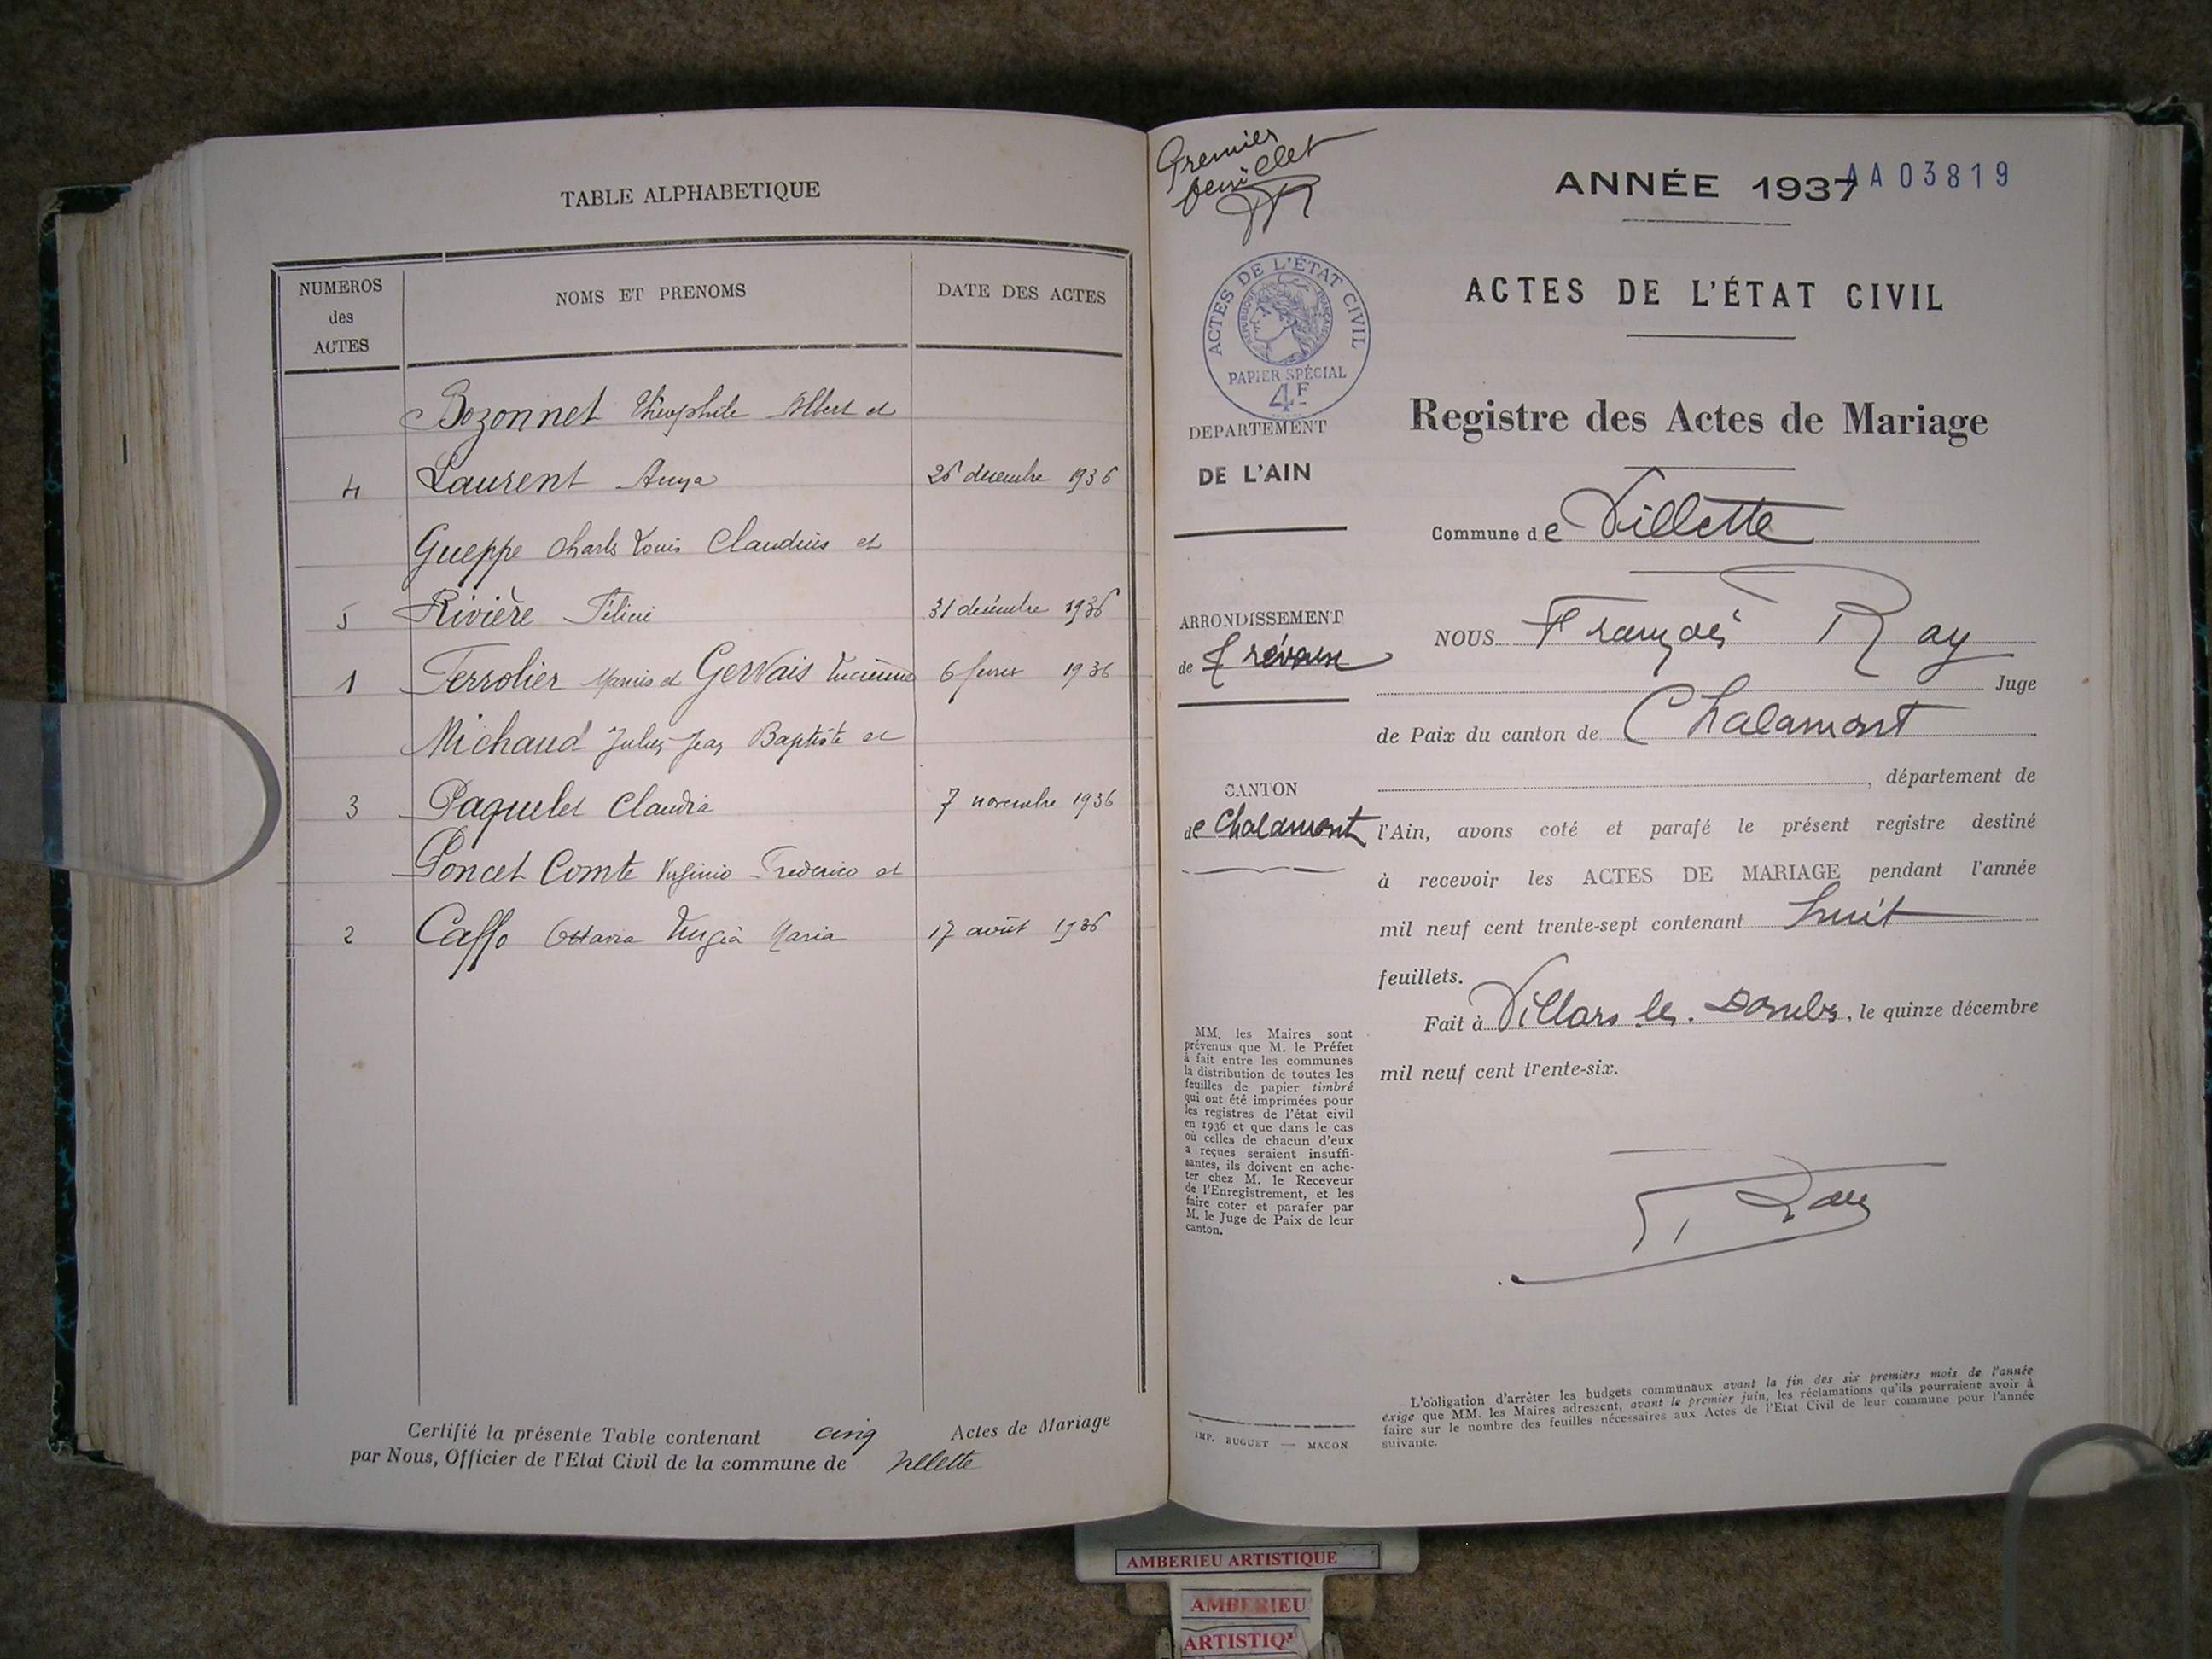 TABLE ALPHABETIQUE
NUMEROS des ACTES
NOMS ET PRENOMS
DATE DES ACTES
Bozonnet Théophile Albert et
4 Laurent 26 decembre 1936
Gueppe Charles Louis Claudius et
5 Rivière Félicie 31 décembre 1936
1 Ferrolier Marius et Gervais Lucienne 6 fevrier 1936
Michaud Jules Jean Baptiste et
3 Paquelet Claudia 7 novembre 1936
Poncet Comte Virginio Frederico et
2 Caffo Ottavia Maria 17 août 1936
Certifié la présente Table contenant cinq Actes de Mariage
par Nous, Officier de l'Etat Civil de la commune de Villette
Premier
feuillet
ANNÉE 1937
AA03819
ACTES DE L'ÉTAT CIVIL
RÉPUBLIQUE FRANÇAISE
PAPIER SPÉCIAL
4F
ACTES DE L'ÉTAT CIVIL
Registre des Actes de Mariage
DEPARTEMENT
DE L'AIN
Commune de Villette
ARRONDISSEMENT
de Trévoux
NOUS François Ray
Juge
de Paix du canton de Chalamont
, département de
CANTON
de Chalamont
l'Ain, avons coté et parafé le présent registre destiné
à recevoir les ACTES DE MARIAGE pendant l'année
mil neuf cent trente-sept contenant huit
feuillets.
Fait à Villars les Dombes, le quinze décembre
mil neuf cent trente-six.
F Ray
MM. les Maires sont
prévenus que M. le Préfet
à fait entre les communes
la distribution de toutes les
feuilles de papier timbré
qui ont été imprimées pour
les registres de l'état civil
en 1936 et que dans le cas
où celles de chacun d'eux
a reçues seraient insuffi-
santes, ils doivent en ache-
ter chez M. le Receveur
de l'Enregistrement, et les
faire coter et parafer par
M. le Juge de Paix de leur
canton.
IMP. BUGUET — MACON
L'obligation d'arrêter les budgets communaux avant la fin des six premiers mois de l'année
exige que MM. les Maires adressent, avant le premier juin, les réclamations qu'ils pourraient avoir à
faire sur le nombre des feuilles nécessaires aux Actes de l'Etat Civil de leur commune pour l'année
suivante.
AMBERIEU ARTISTIQUE
AMBERIEU
ARTISTIQ